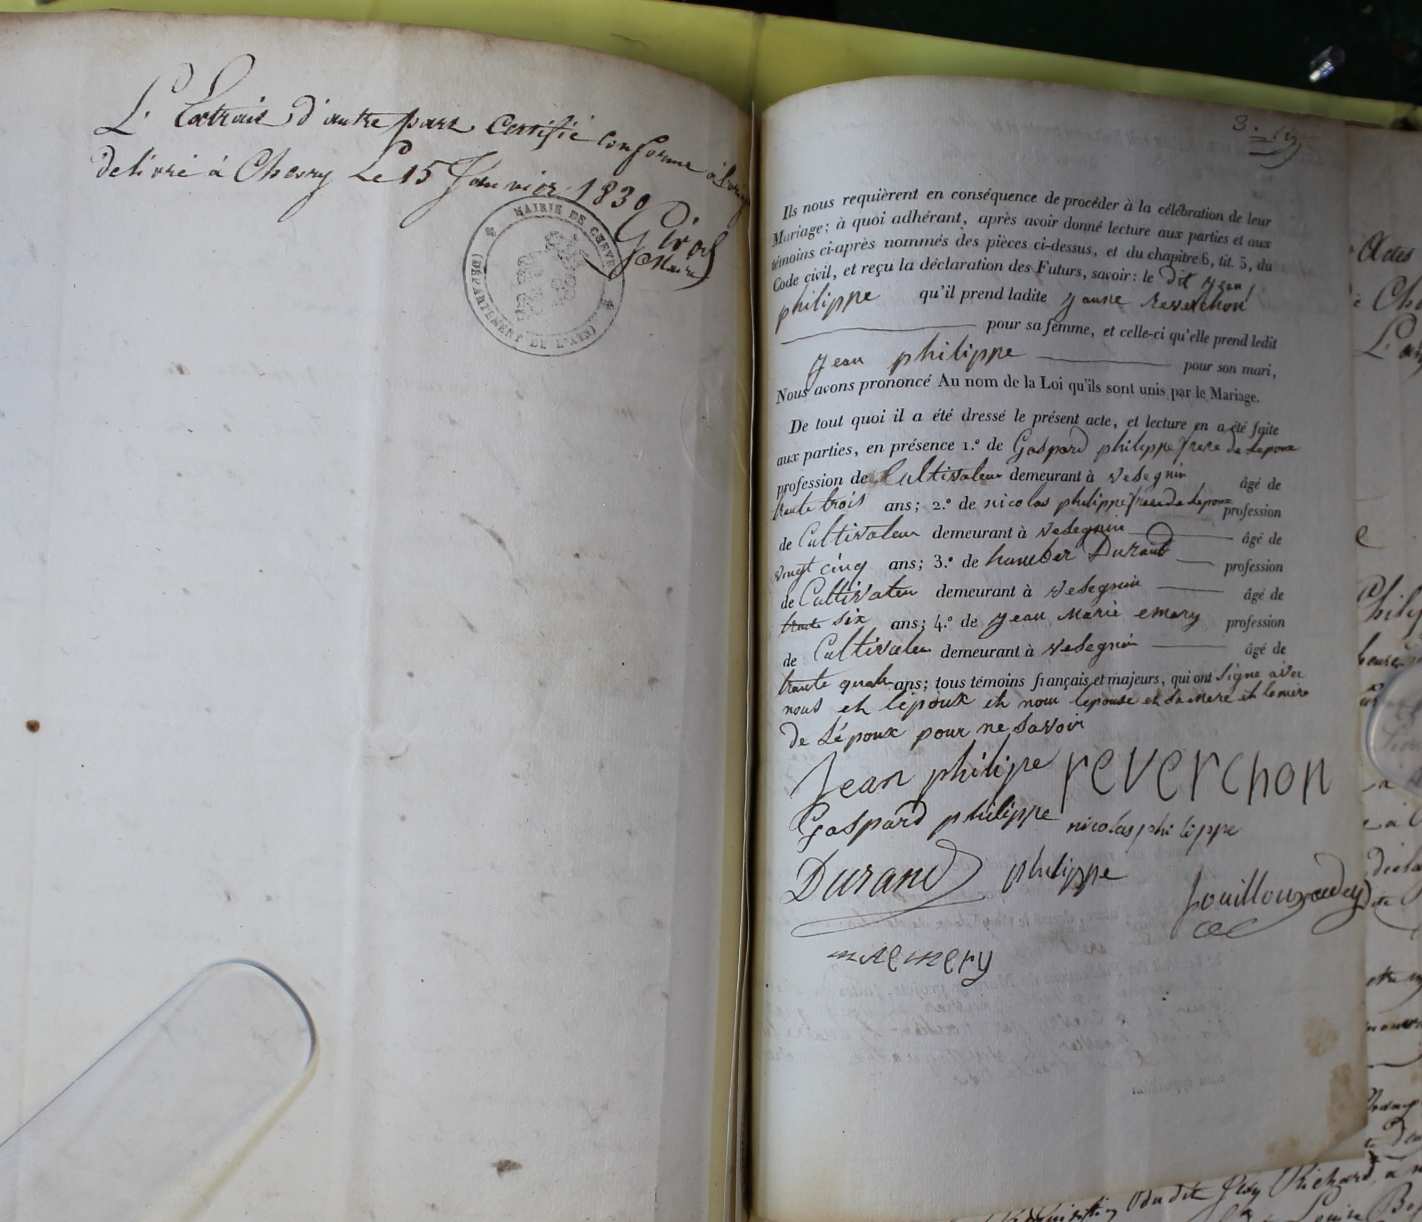 L'Extrait d'autre part certifié conforme à
délivré à Chevry Le 15 Janvier 1830
Girod
Maire
MAIRIE DE CHEVRY
(DÉPARTEMENT DE L'AIN)
3.
Ils nous requièrent en conséquence de procéder à la célébration de leur
Mariage; à quoi adhérant, après avoir donné lecture aux parties et aux
témoins ci-après nommés des pièces ci-dessus, et du chapitre 6, tit. 5, du
Code civil, et reçu la déclaration des Futurs, savoir: le dit jean
philippe qu'il prend ladite jeanne reverchon
pour sa femme, et celle-ci qu'elle prend ledit
jean philippe pour son mari,
Nous avons prononcé Au nom de la Loi qu'ils sont unis par le Mariage.
De tout quoi il a été dressé le présent acte, et lecture en a été faite
aux parties, en présence 1.º de Gaspard philippe frere de Lepoux
profession de Cultivateur demeurant à vesegnin âgé de
trante trois ans; 2.º de nicolas philippe frere de Lepoux profession
de Cultivateur demeurant à vesegnin âgé de
vingt cinq ans; 3.º de Durand profession
de Cultivateur demeurant à vesegnin âgé de
trante six ans; 4.º de jean marie emery profession
de Cultivateur demeurant à vesegnin âgé de
trante quatre ans; tous témoins français et majeurs, qui ont signé avec
nous et lépoux et non lépouse et sa mere et le mere
de Lépoux pour ne savoir
Jean philipe reverchon
Gaspard philippe nicolas philippe
Durand philippe
emery